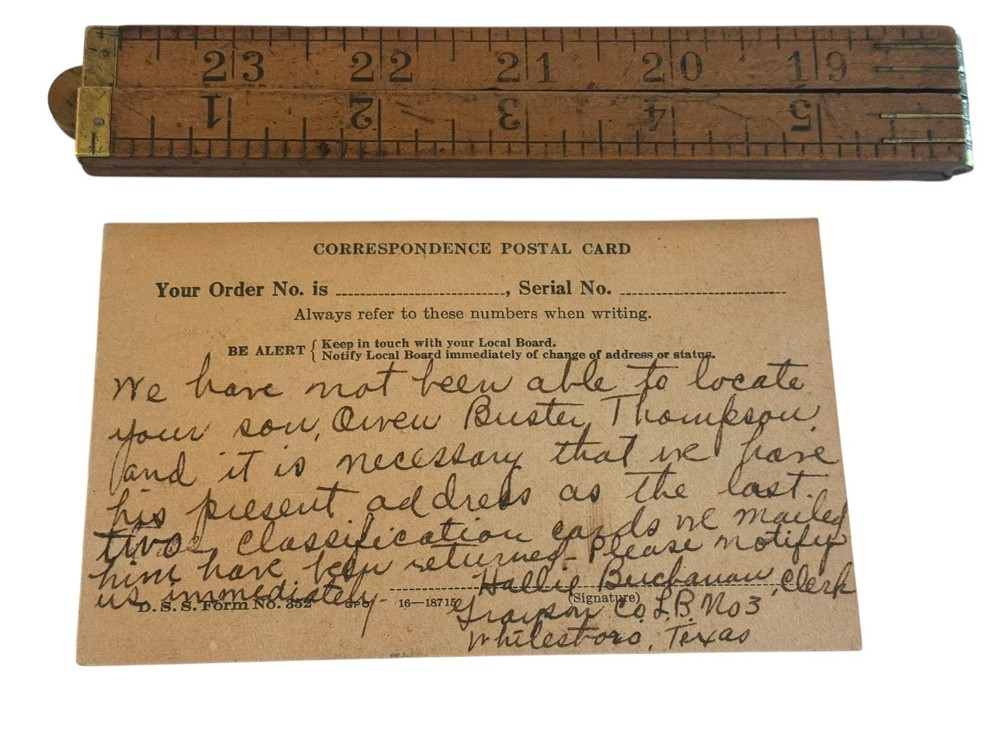 23 22 21 20 19
1 2 3 4 5
CORRESPONDENCE POSTAL CARD
Your Order No. is ........................, Serial No. ........................
Always refer to these numbers when writing.
BE ALERT { Keep in touch with your Local Board.
Notify Local Board immediately of change of address or status.
We have not been able to locate
your son, Owen Buster Thompson,
and it is necessary that we have
his present address as the last
two classification cards we mailed
him have been returned - Please notify
us immediately -
Hallie Buchanan, Clerk
D. S. S. Form No. 352 GPO 16—18715
(Signature)
Grayson Co. L.B. No 3
Whitesboro, Texas